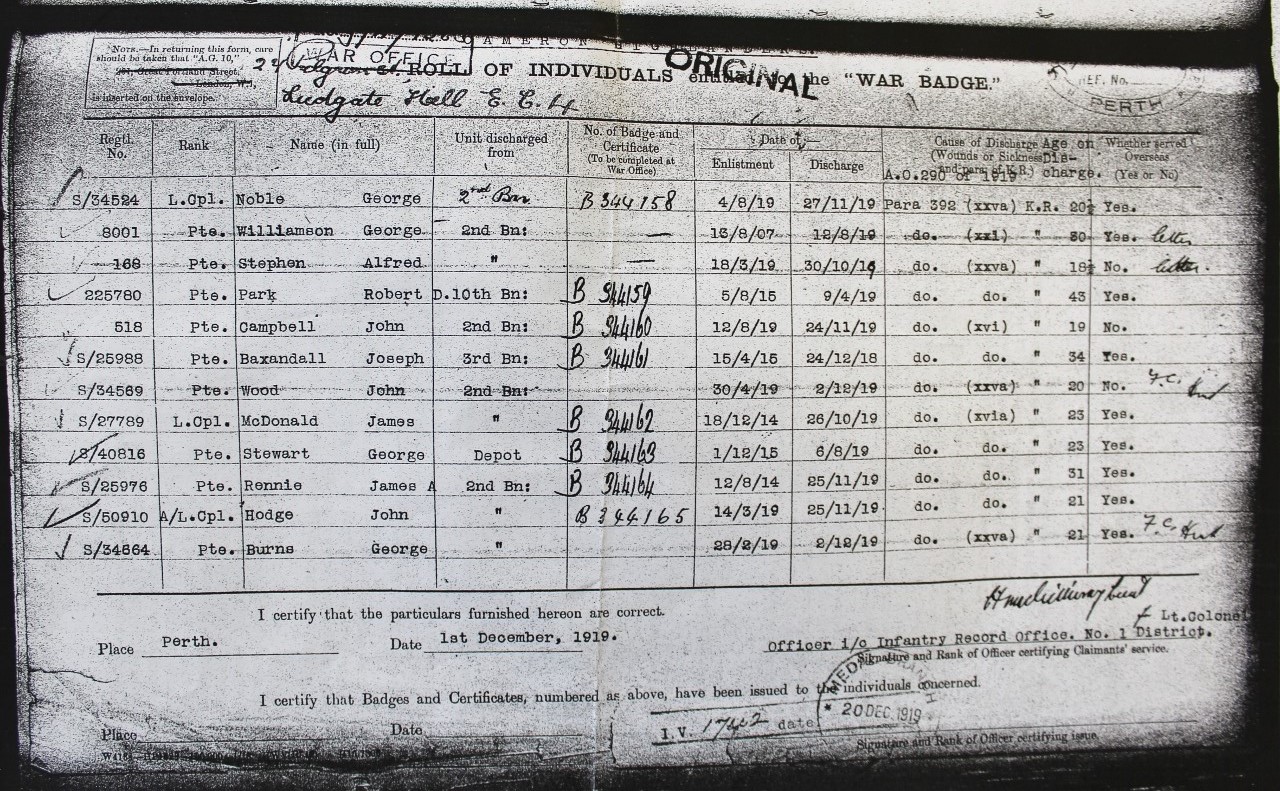 CAMERON HIGHLANDERS
NOTE.—In returning this form, care should be taken that "A.G. 10," is inserted on the envelope.
WAR OFFICE
ORIGINAL
ROLL OF INDIVIDUALS entitled to the "WAR BADGE."
REF. No.
PERTH
Ludgate Hill E.C.4
Regtl. No. Rank Name (in full) Unit discharged from No. of Badge and Certificate (To be completed at War Office) Date of Enlistment Discharge Cause of Discharge (Wounds or Sickness and para. of K.R.) A.O.290 of 1919 Age on Dis-charge. Whether served Overseas (Yes or No)
S/34524 L.Cpl. Noble George 2nd Bn B 344158 4/8/19 27/11/19 Para 392 (xxva) K.R. 20½ Yes.
8001 Pte. Williamson George 2nd Bn: — 13/8/07 12/8/19 do. (xxi) " 30 Yes. letter
168 Pte. Stephen Alfred " — 18/3/19 30/10/19 do. (xxva) " 18½ No. letter.
225780 Pte. Park Robert D. 10th Bn: B 344159 5/8/15 9/4/19 do. do. " 43 Yes.
518 Pte. Campbell John 2nd Bn: B 344160 12/8/19 24/11/19 do. (xvi) " 19 No.
S/25988 Pte. Baxandall Joseph 3rd Bn: B 344161 15/4/15 24/12/18 do. do. " 34 Yes.
S/34569 Pte. Wood John 2nd Bn: 30/4/19 2/12/19 do. (xxva) " 20 No. F.C.
S/27789 L.Cpl. McDonald James " B 344162 18/12/14 26/10/19 do. (xvia) " 23 Yes.
S/40816 Pte. Stewart George Depot B 344163 1/12/15 6/8/19 do. do. " 23 Yes.
S/25976 Pte. Rennie James A 2nd Bn: B 344164 12/8/14 25/11/19 do. do. " 31 Yes.
S/50910 A/L.Cpl. Hodge John " B 344165 14/3/19 25/11/19 do. do. " 21 Yes.
S/34664 Pte. Burns George " 28/2/19 2/12/19 do. (xxva) " 21 Yes. F.C.
I certify that the particulars furnished hereon are correct.
Lt.Colonel
Place Perth. Date 1st December, 1919. Officer i/c Infantry Record Office. No. 1 District.
Signature and Rank of Officer certifying Claimants' service.
I certify that Badges and Certificates, numbered as above, have been issued to the individuals concerned.
MEDAL
* 20 DEC 1919
I.V. 1742 date
Place Date
Signature and Rank of Officer certifying issue.